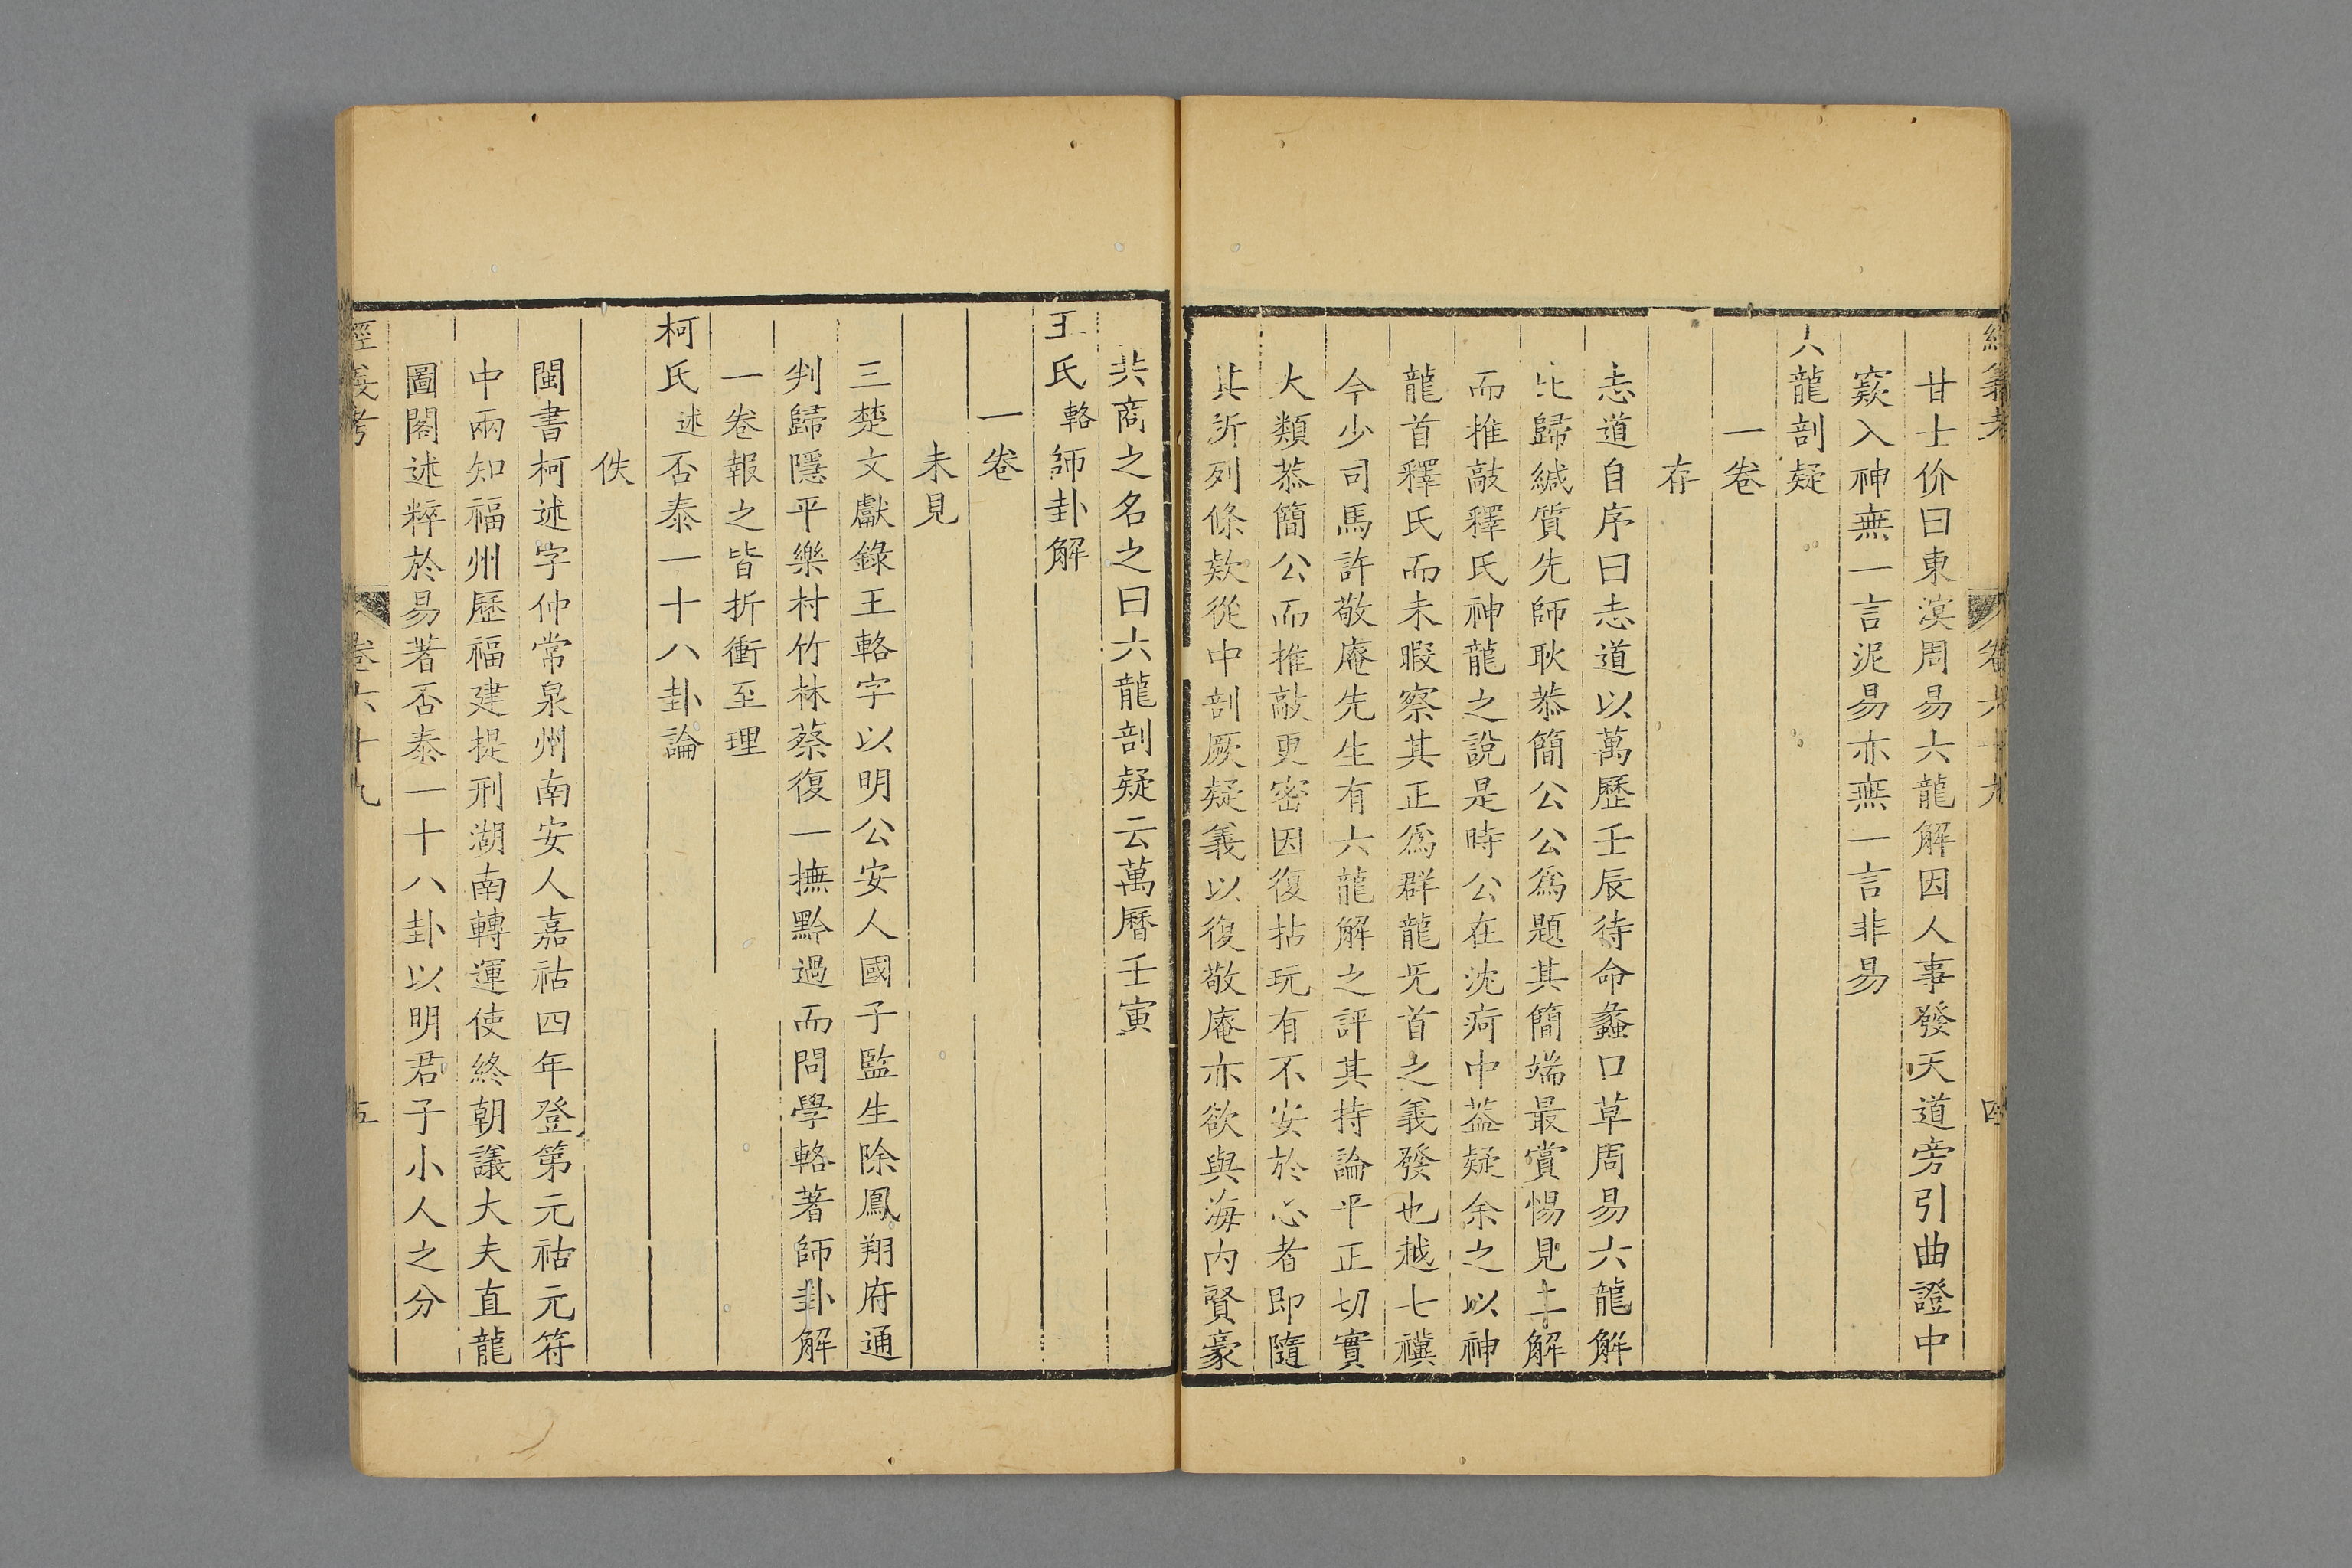 經義考 卷六十九 四
甘士价曰東溟周易六龍解因人事發天道旁引曲證中
窾入神無一言泥易亦無一言非易
六龍剖疑
一卷
存
志道自序曰志道以萬歷壬辰待命蠡口草周易六龍解
比歸緘質先師耿恭簡公公為題其簡端最賞惕見二解
而推敲釋氏神龍之說是時公在沈疴中葢疑余之以神
龍首釋氏而未暇察其正為群龍旡首之義發也越七禩
今少司馬許敬庵先生有六龍解之評其持論平正切實
大類恭簡公而推敲更密因復拈玩有不安於心者即隨
其所列條欵從中剖厥疑義以復敬庵亦欲與海内賢豪
共商之名之曰六龍剖疑云萬曆壬寅
王氏輅師卦解
一卷
未見
三楚文獻錄王輅字以明公安人國子監生除鳳翔府通
判歸隱平樂村竹林蔡復一撫黔過而問學輅著師卦解
一卷報之皆折衝至理
柯氏述否泰一十八卦論
佚
閩書柯述字仲常泉州南安人嘉祐四年登第元祐元符
中兩知福州歷福建提刑湖南轉運使終朝議大夫直龍
圖閣述粹於易著否泰一十八卦以明君子小人之分
經義考 卷六十九 五